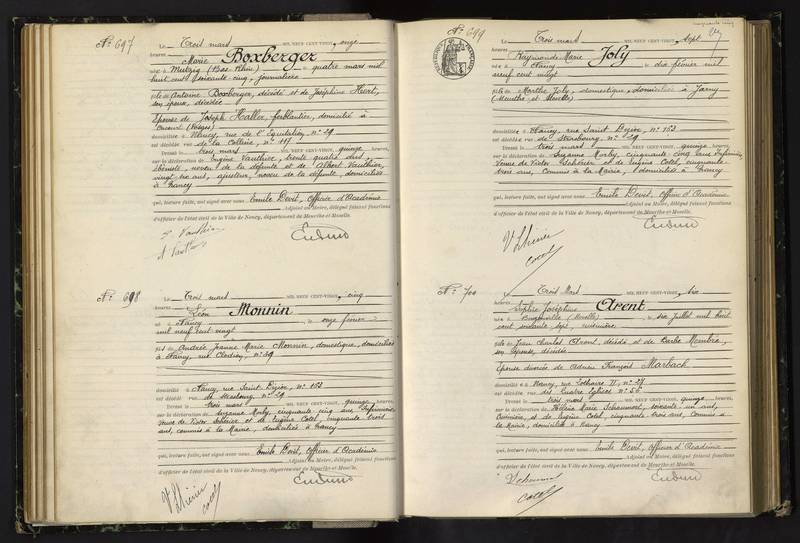 N° 697
Le Trois mars MIL NEUF CENT-VINGT, onze
heures
Marie Boxberger
née à Mutzig (Bas-Rhin) le quatre mars mil
huit cent soixante cinq, journalière
fille de Antoine Boxberger, décédé et de Joséphine
son épouse, décédée
Epouse de Joseph Haller, ferblantier, domicilié à
(Vosges)
domiciliée à Nancy, rue de l'Equitation, n° 29
est décédée rue de la Colline, n° 117
Dressé le trois mars MIL NEUF CENT-VINGT, quinze heures
sur la déclaration de Eugène Vauthier, trente quatre ans
ébéniste, neveu de la défunte et de Albert Vauthier,
vingt ans, ajusteur, neveu de la défunte, domiciliés
à Nancy
qui, lecture faite, ont signé avec nous Emile Devit, Officier d'Académie
Adjoint au Maire, délégué faisant fonctions
d'officier de l'état civil de la Ville de Nancy, département de Meurthe-et-Moselle.
N° 698
Le Trois mars MIL NEUF CENT-VINGT, cinq
heures
Léon Monnin
né à Nancy le onze février
mil neuf cent vingt
fils de Andrée Jeanne Marie Monnin, domestique, domiciliée
à Nancy, rue n° 39
domicilié à Nancy, rue Saint-Dizier, n° 153
est décédé rue de Strasbourg, n° 29
Dressé le trois mars MIL NEUF CENT-VINGT, quinze heures
sur la déclaration de Suzanne cinquante cinq ans, infirmière
Veuve de Victor et de Eugène Cotel, cinquante trois
ans, commis à la Mairie, domiciliés à Nancy
qui, lecture faite, ont signé avec nous Emile Devit, Officier d'Académie
Adjoint au Maire, délégué faisant fonctions
d'officier de l'état civil de la Ville de Nancy, département de Meurthe-et-Moselle.
V Lhérier
cotel
N° 699
Le Trois mars MIL NEUF CENT-VINGT, sept
heures
Raymonde Marie Joly
née à Nancy le dix février mil
neuf cent vingt
fille de Marthe Joly, domestique, domiciliée à Jarny
(Meurthe et Moselle)
domiciliée à Nancy, rue Saint Dizier, n° 153
est décédée rue de Strasbourg, n° 29
Dressé le trois mars MIL NEUF CENT-VINGT, quinze heures
sur la déclaration de Suzanne cinquante cinq ans infirmière
Veuve de Victor et de Eugène Cotel, cinquante
trois ans, Commis à la Mairie, domiciliés à Nancy
qui, lecture faite, ont signé avec nous Emile Devit, Officier d'Académie
Adjoint au Maire, délégué faisant fonctions
d'officier de l'état civil de la Ville de Nancy, département de Meurthe-et-Moselle.
V Lhérier
cotel
N° 700
Le Trois Mars MIL NEUF CENT-VINGT, six
heures
Sophie Joséphine Arent
née à (Moselle) le six juillet mil huit
cent soixante sept, cuisinière
fille de Jean Charles Arent, décédé et de Barbe
son épouse, décédée
Epouse divorcée de Adrien François Marbach
domiciliée à Nancy, rue Lothaire II, n° 27
est décédée rue des Quatre Eglises, n° 58
Dressé le trois mars MIL NEUF CENT-VINGT, quinze heures
sur la déclaration de Marie soixante un ans,
et de Eugène Cotel, cinquante trois ans, Commis à
la Mairie, domiciliés à Nancy
qui, lecture faite, ont signé avec nous Emile Devit, Officier d'Académie
Adjoint au Maire, délégué faisant fonctions
d'officier de l'état civil de la Ville de Nancy, département de Meurthe-et-Moselle.
cotel